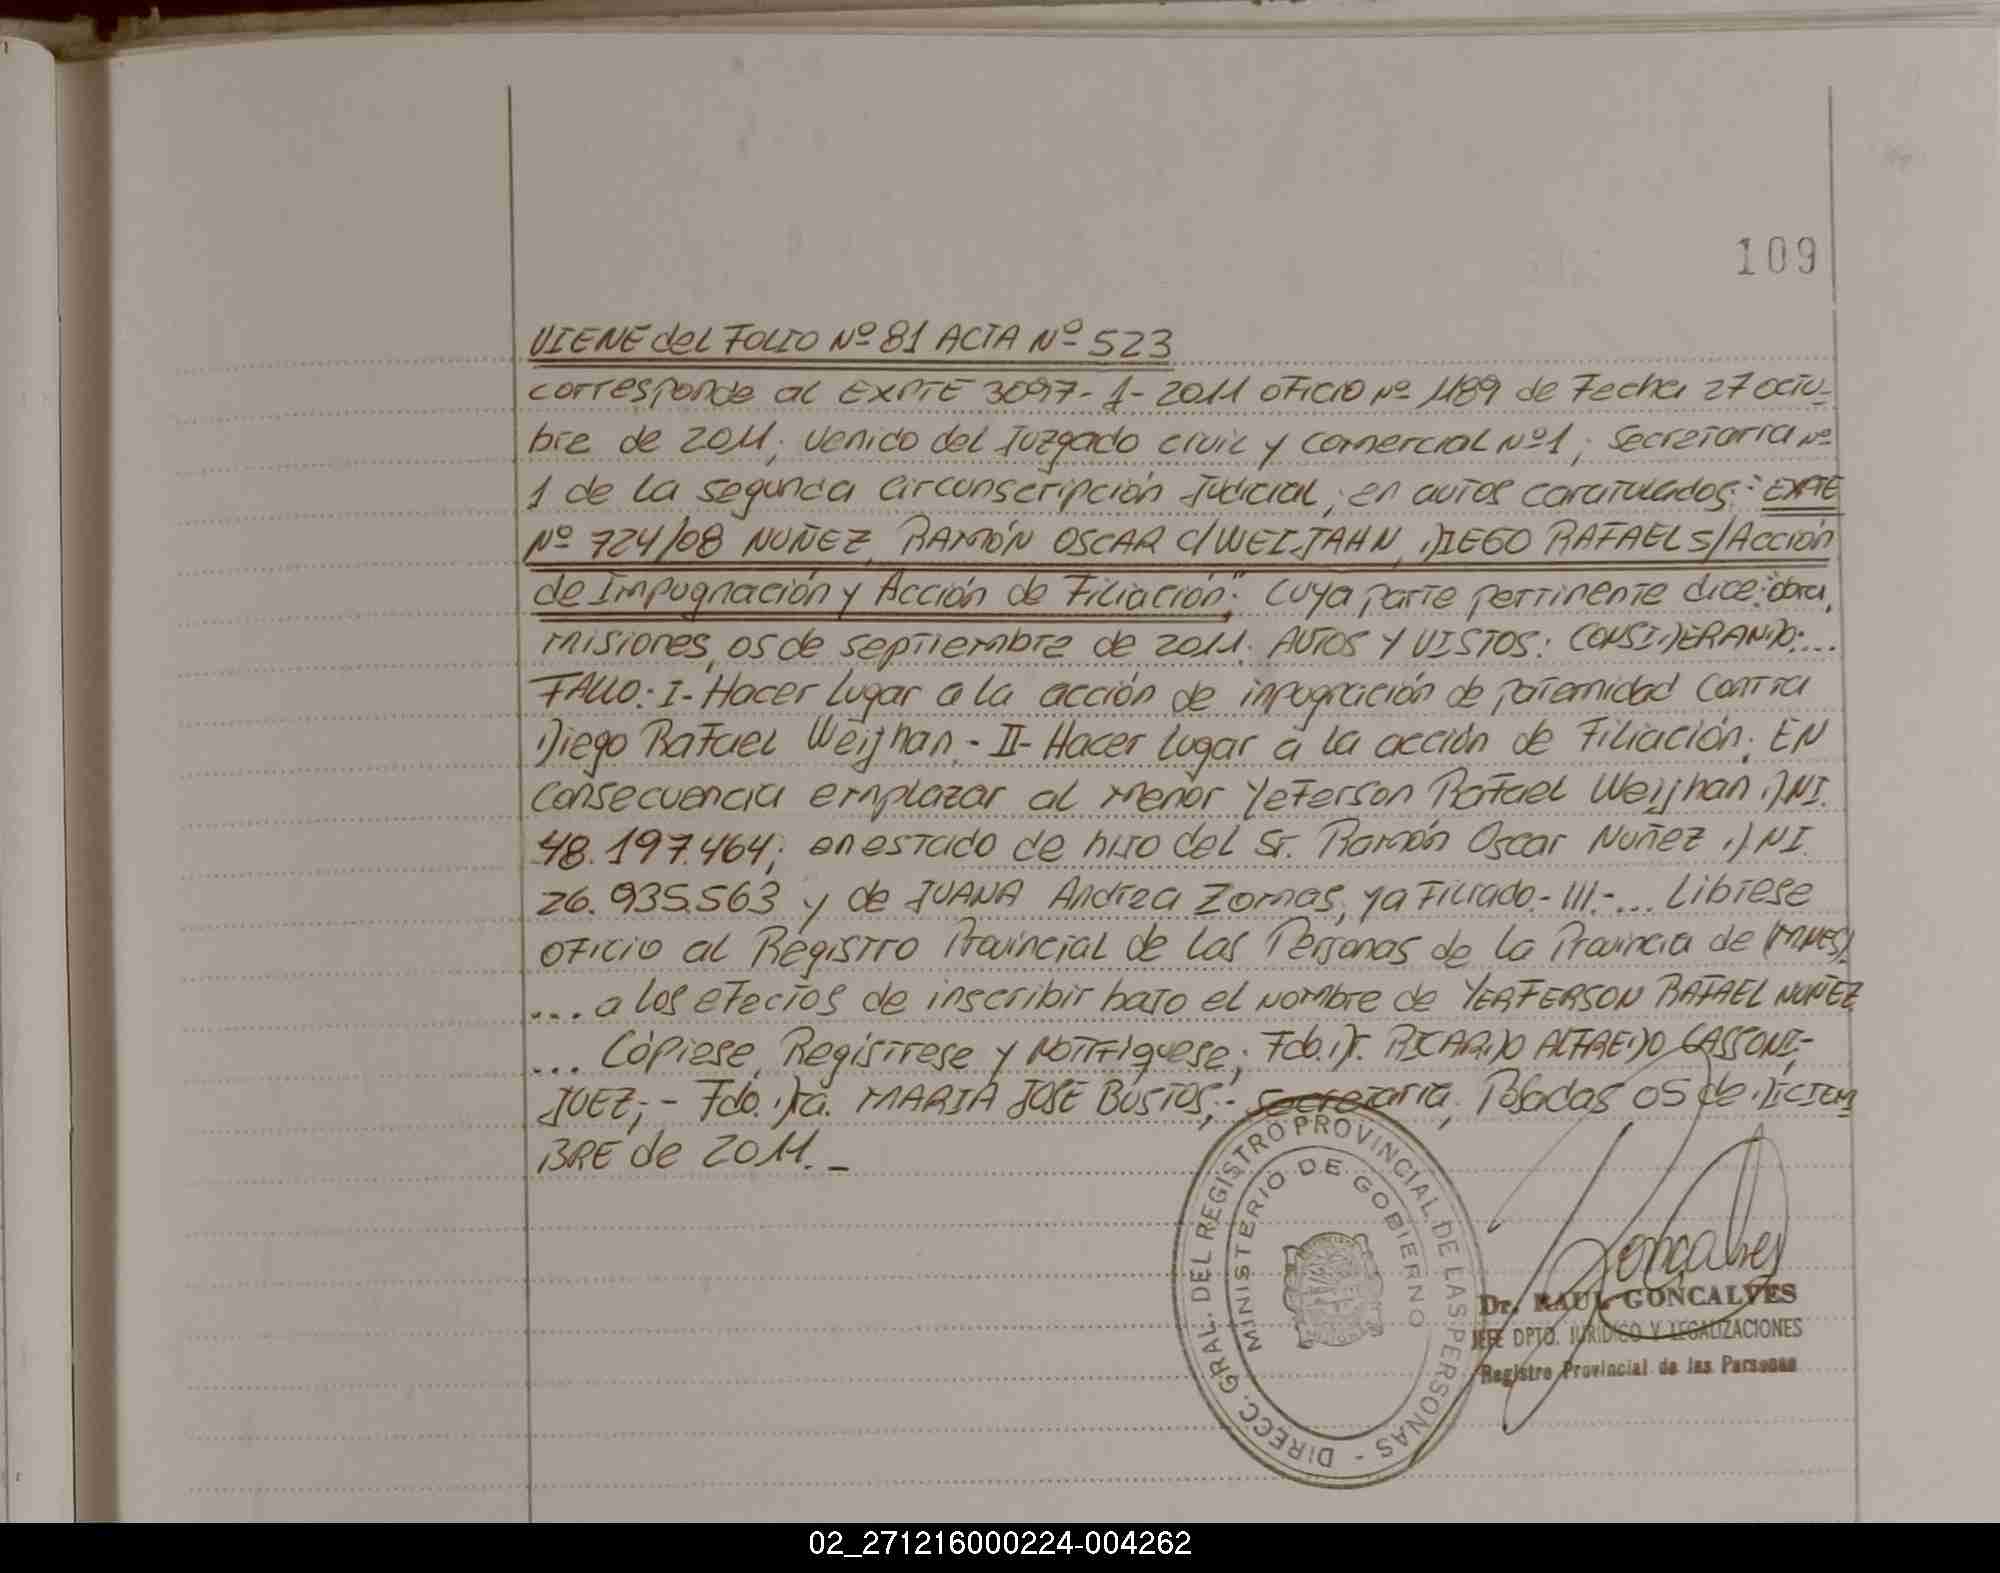 109
VIENE del FOLIO Nº 81 ACTA Nº 523
corresponde al EXPTE 3097-1-2011 oficio nº 1189 de Fecha 27 octu-
bre de 2011; venido del Juzgado civil y comercial Nº1; secretaria nº
1 de la segunda circunscripción Judicial; en autos caratulados: "EXPTE
Nº 724/08 NUÑEZ, RAMÓN OSCAR C/WEIJAHN, DIEGO RAFAEL S/Acción
de Impugnación y Acción de Filiación"; cuya parte pertinente dice: "obra,
misiones, 05 de septiembre de 2011. AUTOS Y VISTOS: CONSIDERANDO:....
FALLO: I- Hacer lugar a la acción de inpugnación de paternidad contra
Diego Rafael Weijhan.- II- Hacer lugar a la acción de Filiación; EN
consecuencia emplazar al menor Yeferson Rafael Weijhan DNI.
48.197.464; en estado de hijo del Sr. Ramón Oscar Nuñez DNI.
26.935.563 y de JUANA Andrea Zornas, ya Filiado.- III.-... Libiese
oficio al Registro Provincial de las Personas de la Provincia de (MNES).
... a los efectos de inscribir bajo el nombre de YERFERSON RAFAEL NUÑEZ
... Cópiese, Regístrese y Notifíquese; Fdo. Dr. RICARDO ALFREDO CASSONI,-
JUEZ;- Fdo. Dra. MARIA JOSE BUSTOS;- secretaria, Posadas 05 de DICIEM
BRE de 2011.-
DIRECC. GRAL. DEL REGISTRO PROVINCIAL DE LAS PERSONAS -
MINISTERIO DE GOBIERNO
Goncalves
Dr. RAUL GONCALVES
JEFE DPTO. JURIDICO Y LEGALIZACIONES
Registro Provincial de las Personas
02_271216000224-004262